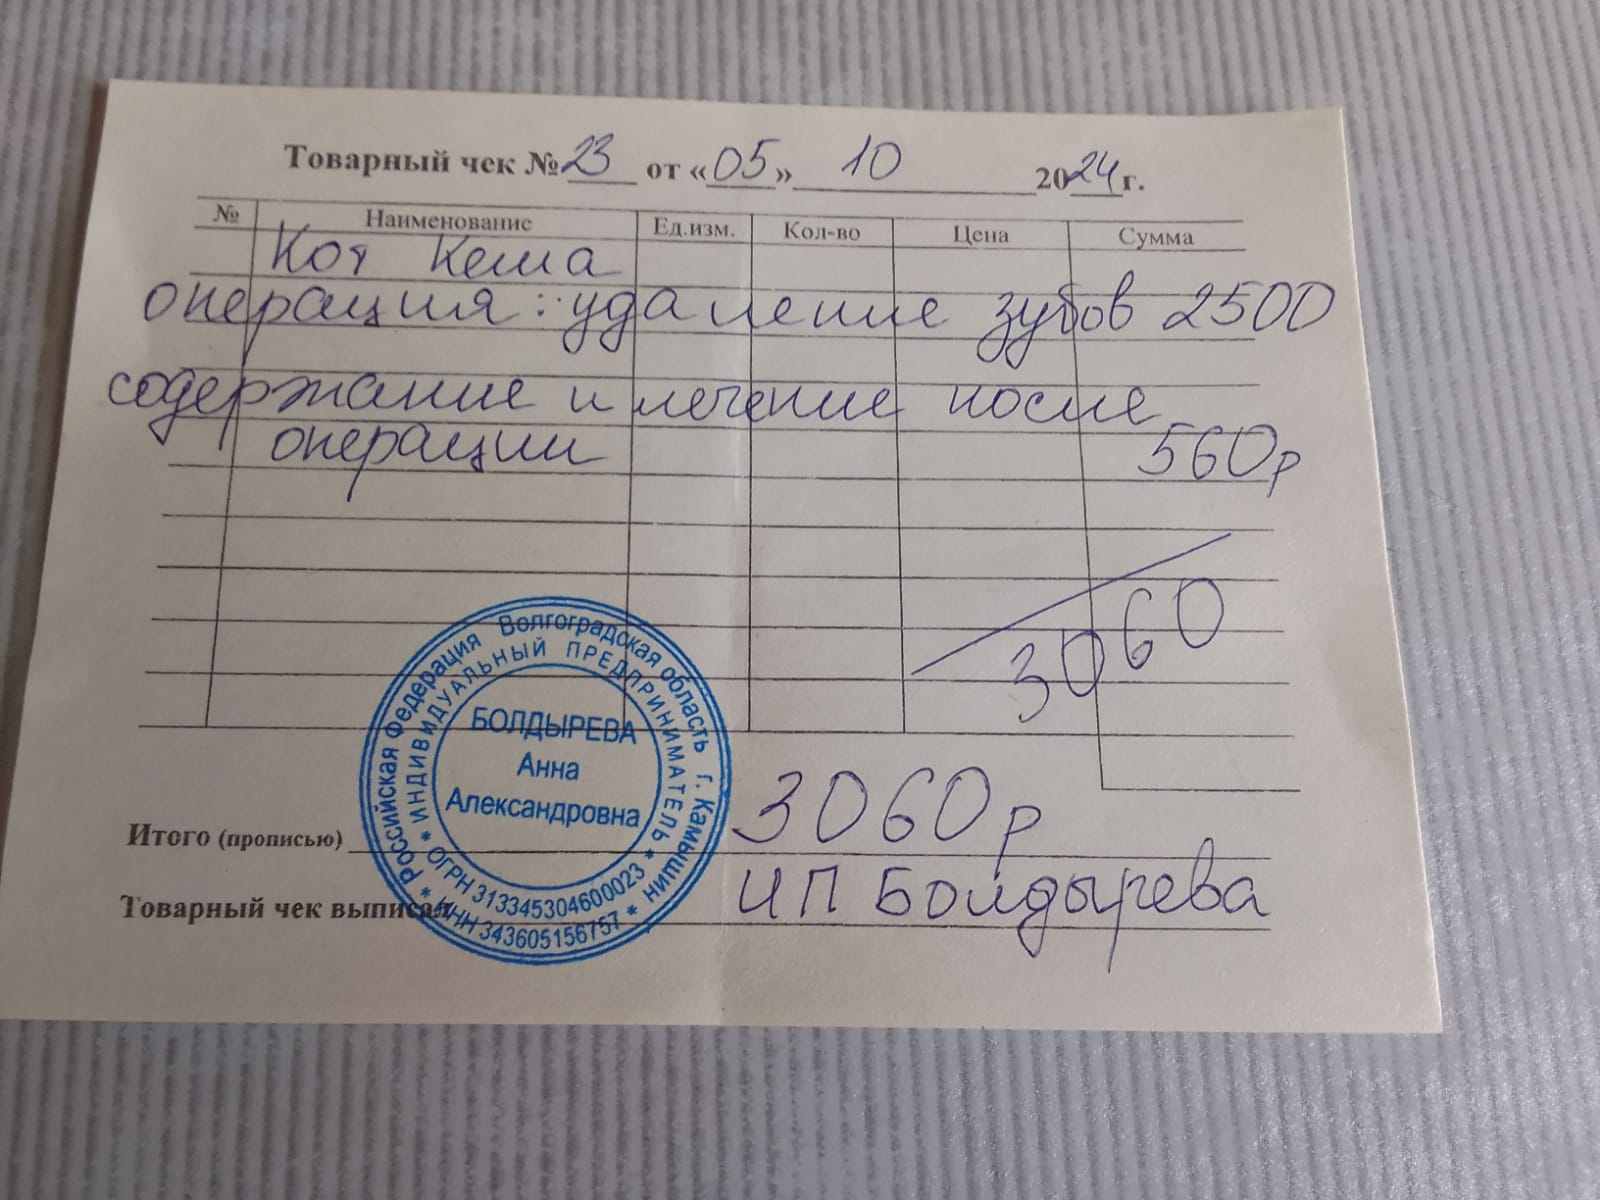 Товарный чек № 23 от «05» 10 2024 г.
№ Наименование Ед.изм. Кол-во Цена Сумма
Кот Кеша
операция: удаление зубов 2500
содержание и лечение после
операции 560р
3060
Итого (прописью) 3060 р
Товарный чек выписал ИП Болдырева
* Российская Федерация Волгоградская область г. Камышин *
* ИНДИВИДУАЛЬНЫЙ ПРЕДПРИНИМАТЕЛЬ *
БОЛДЫРЕВА
Анна
Александровна
ОГРН 313345304600023
ИНН 343605156757